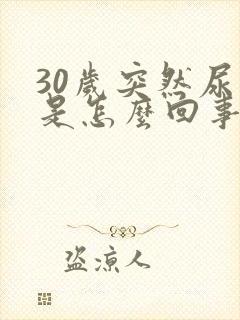 30歲突然尿
是怎麼回事
盜涼人